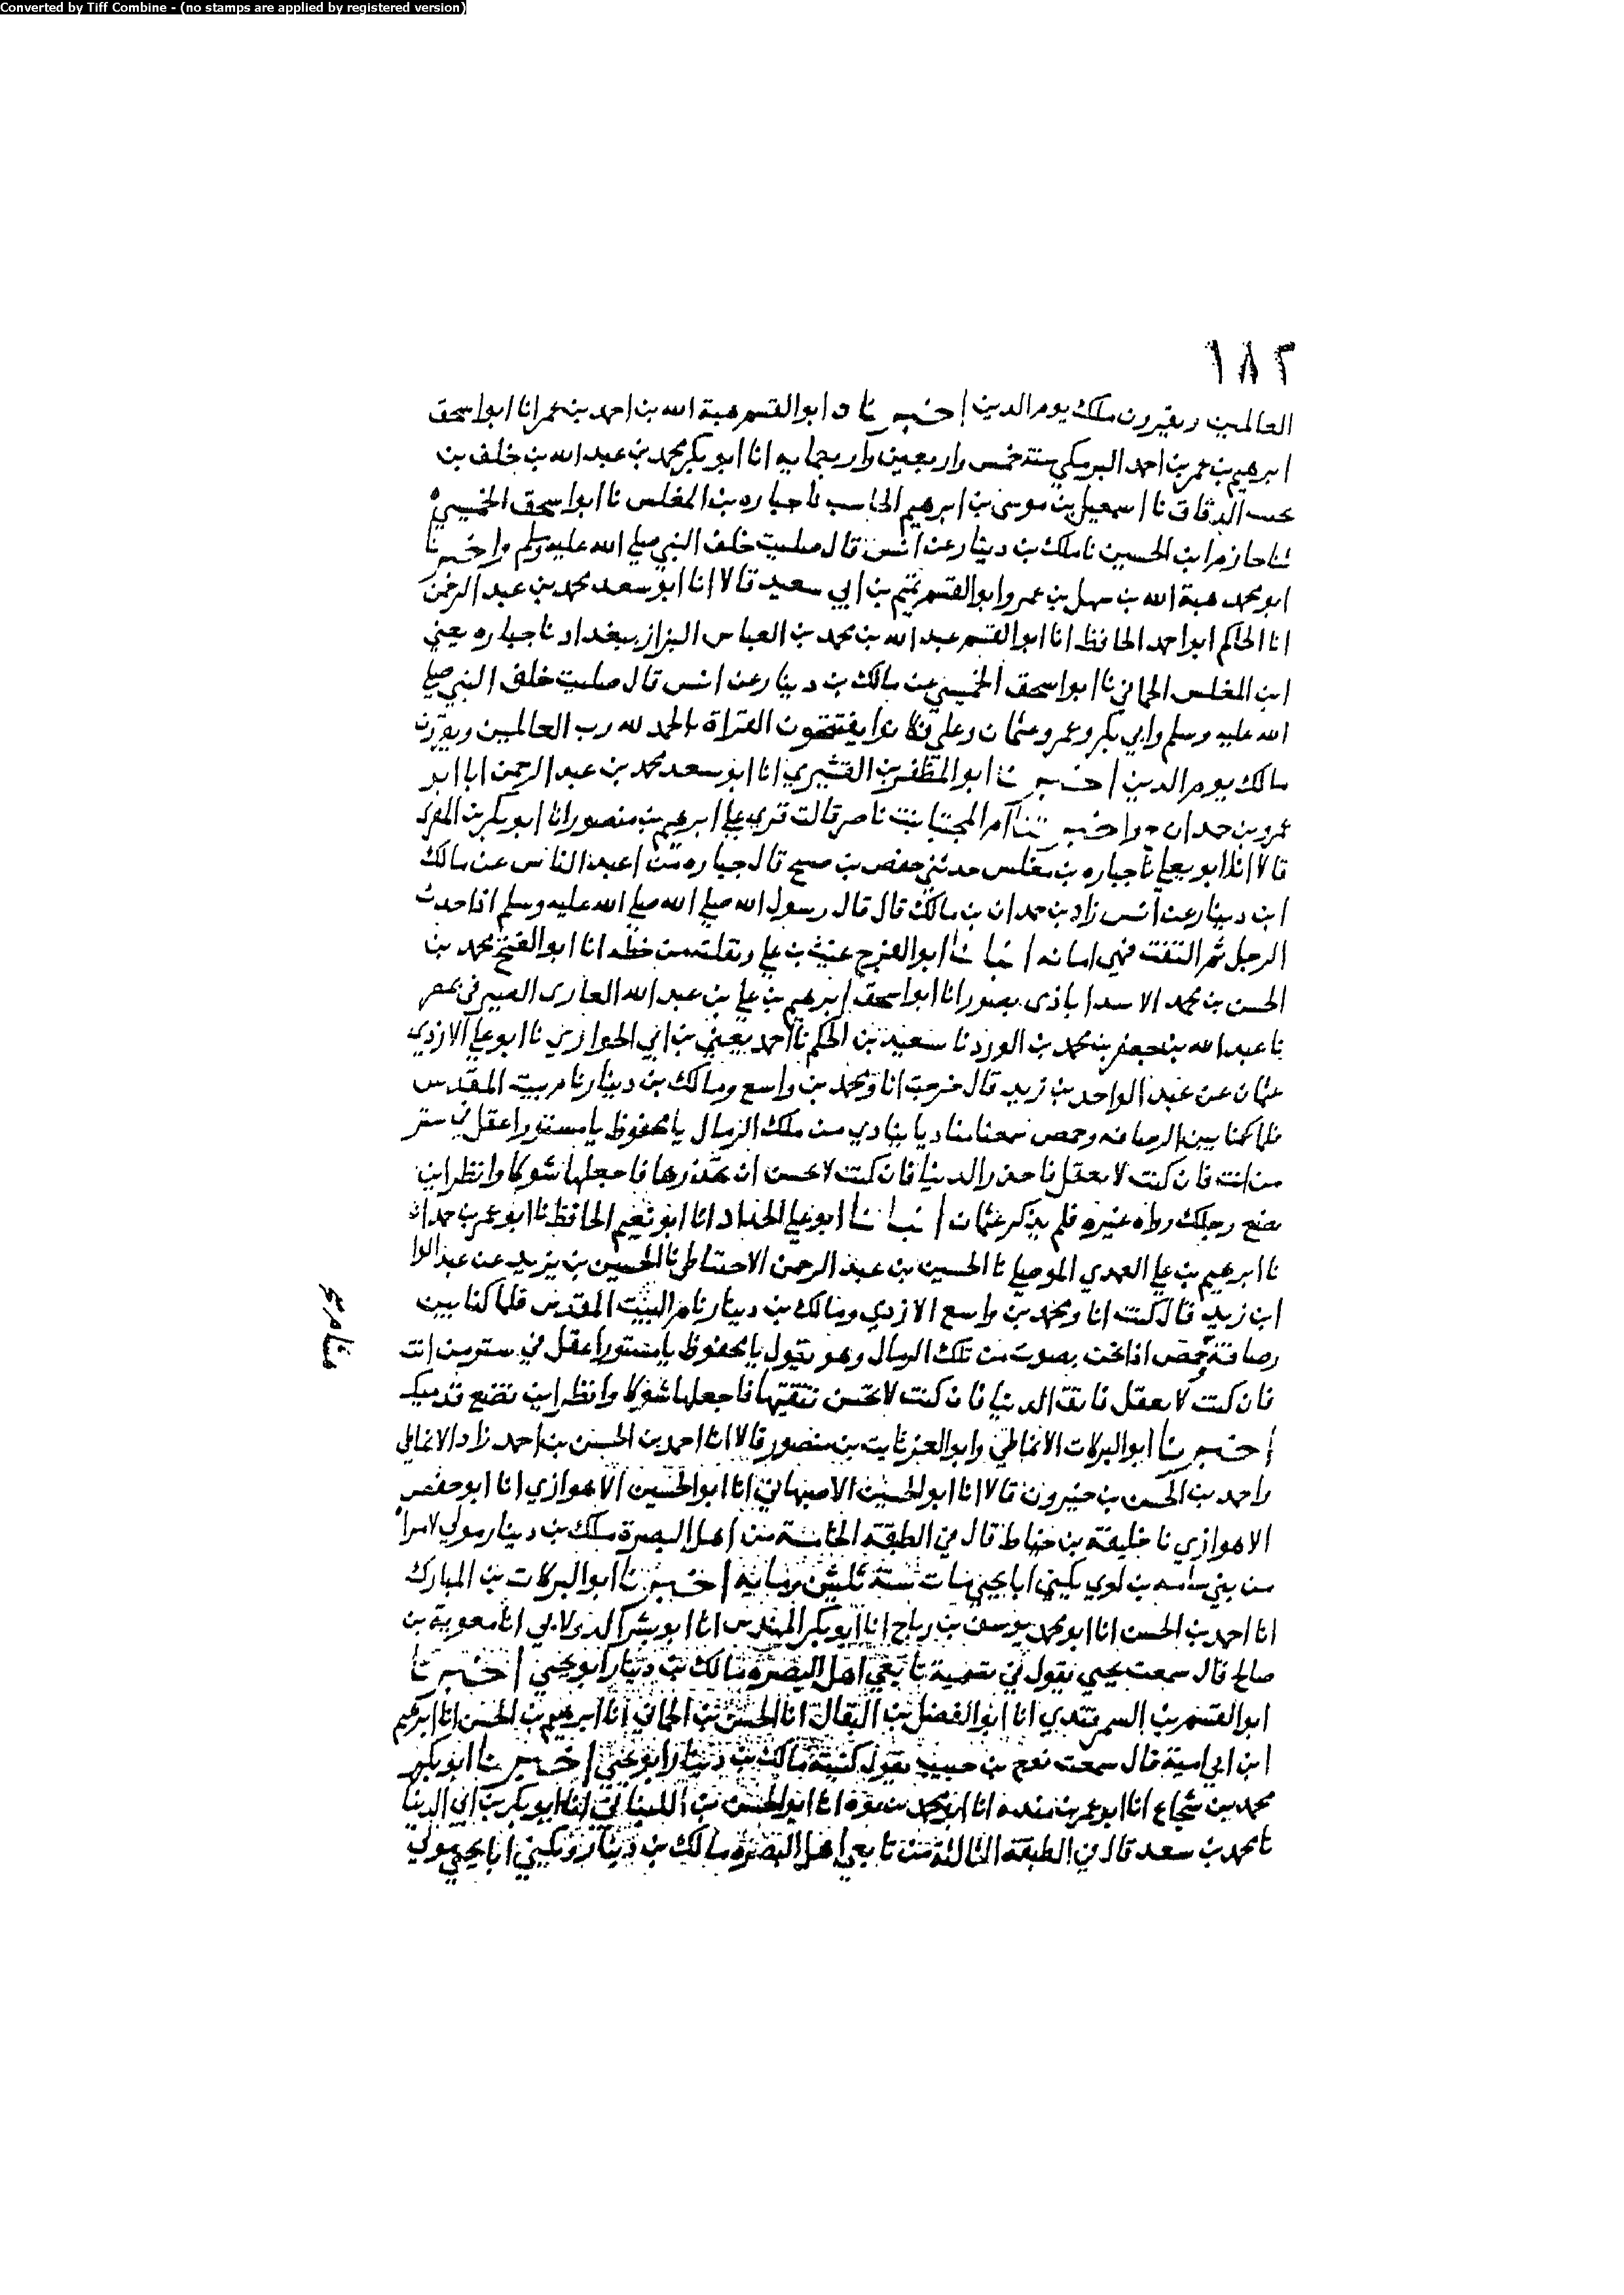 Converted by Tiff Combine - (no stamps are applied by registered version)
١٨٢
العالمين ويقرون ملك يوم الدين اخبرنا ابو القسم هبة الله بن احمد بن عمر انا ابو اسحق
ابرهيم بن عمر بن احمد البرمكي سنة خمس واربعين واربعمايه انا ابو بكر محمد بن عبد الله بن خلف بن
الدقاق نا اسمعيل بن موسى بن ابرهيم الحاسب نا جباره بن المغلس نا ابو اسحق الخميسي
ابن الحسين نا ملك بن دينار عن انس قال صليت خلف النبي صلي الله عليه وسلم واخبرنا
ابو محمد هبة الله بن سهل بن عمر وابو القسم تميم بن ابي سعيد قالا انا ابو سعد محمد بن عبد الرحمن
انا الحاكم ابو احمد الحافظ انا ابو القسم عبد الله بن محمد بن العباس البزاز ببغداد نا جباره يعني
ابن المغلس الحماني نا ابو اسحق الخميسي عن مالك بن دينار عن انس قال صليت خلف النبي صلي
الله عليه وسلم وابي بكر وعمر وعثمان وعلي فكانوا يفتتحون القراة بالحمد لله رب العالمين ويقرون
مالك يوم الدين اخبرنا ابو المظفر بن القشيري انا ابو سعد محمد بن عبد الرحمن ابا ابو
عمرو بن حمدان ح واخبرتنا ام المجتبا بنت ناصر قالت قري علي ابرهيم بن منصور انا ابو بكر بن المقرى
قالا انا ابو يعلي نا جباره بن مغلس حدثني حفص بن صبيح قال جباره من اعبد الناس عن مالك
ابن دينار عن انس زاد بن حمدان بن مالك قال قال رسول الله صلي الله صلي الله عليه وسلم اذا حدث
الرجل ثم التفت فهي امانه انبانا ابو الفرج غيث بن علي ونقلته من خطه انا ابو الفتح محمد بن
الحسن بن محمد الاسداباذى بصور انا ابو اسحق ابرهيم بن علي بن عبد الله الغازى الصيرفي بمصر
نا عبد الله بن جعفر بن محمد بن الورد نا سعيد بن الحكم نا احمد يعني بن ابي الحواري نا ابو علي الازدي
عثمان عن عبد الواحد بن زيد قال خرجت انا ومحمد بن واسع ومالك بن دينار نا مر بيت المقدس
فلما كنا بين الرصافه وحمص سمعنا مناديا ينادي من تلك الرمال يا محفوظ يا مستور اعقل في ستر
من انت فان كنت لا تعقل فاحذر الدنيا فان كنت لا تحسن ان تحذرها فاجعلها شوكا وانظر اين
تضع رجلك رواه غيره فلم يذكر عثمان انبانا ابو علي الحداد انا ابو نعيم الحافظ نا ابو عمر بن حمدان
نا ابرهيم بن علي العهدي الموصلي نا الحسين بن عبد الرحمن الاحتياطي نا الحسين بن يزيد عن عبد الوا
ابن زيد قال كنت انا ومحمد بن واسع الازدي ومالك بن دينار نا مر البيت المقدس فلما كنا بين
رصافة وحمص اذا نحن بصوت من تلك الرمال وهو يقول يا محفوظ يا مستور اعقل في ستر من انت
فان كنت لا تعقل فاتق الدنيا فان كنت لا تحسن تتقيها فاجعلها شوكا وانظر اين تضع قدميك
اخبرنا ابو البركات الانماطي وابو العز ثابت بن منصور قالا انا احمد بن الحسن بن احمد زاد الانماطي
واحمد بن الحسن بن خيرون قالا انا ابو الحسين الاصبهاني انا ابو الحسين الاهوازي انا ابو حفص
الاهوازي نا خليفة بن خياط قال في الطبقة الخامسة من اهل البصرة ملك بن دينار مولي لامراه
من بني سامه بن لوي يكني ابا يحيي مات سنة ثلثين ومايه اخبرنا ابو البركات بن المبارك
انا احمد بن الحسن انا ابو محمد يوسف بن رباح انا ابو بكر المهندس انا ابو بشر الدولابي انا معوية بن
صالح قال سمعت يحيي يقول في تسمية تابعي اهل البصره مالك بن دينار ابو يحيي اخبرنا
ابو القسم بن السمرقندي انا ابو الفضل بن البقال انا الحسن بن الحماني انا ابرهيم بن الحسن انا ابرهيم
ابن ابي امية قال سمعت نوح بن حبيب يقول كنية مالك بن دينار ابو يحيي اخبرنا ابو بكر
محمد بن شجاع انا ابو عمر بن منده انا ابو محمد بن يوه انا ابو الحسن بن اللبناني انا ابو بكر بن ابي الدنيا
نا محمد بن سعد قال في الطبقة الثالثة من تابعي اهل البصره مالك بن دينار ويكني ابا يحيي مولي